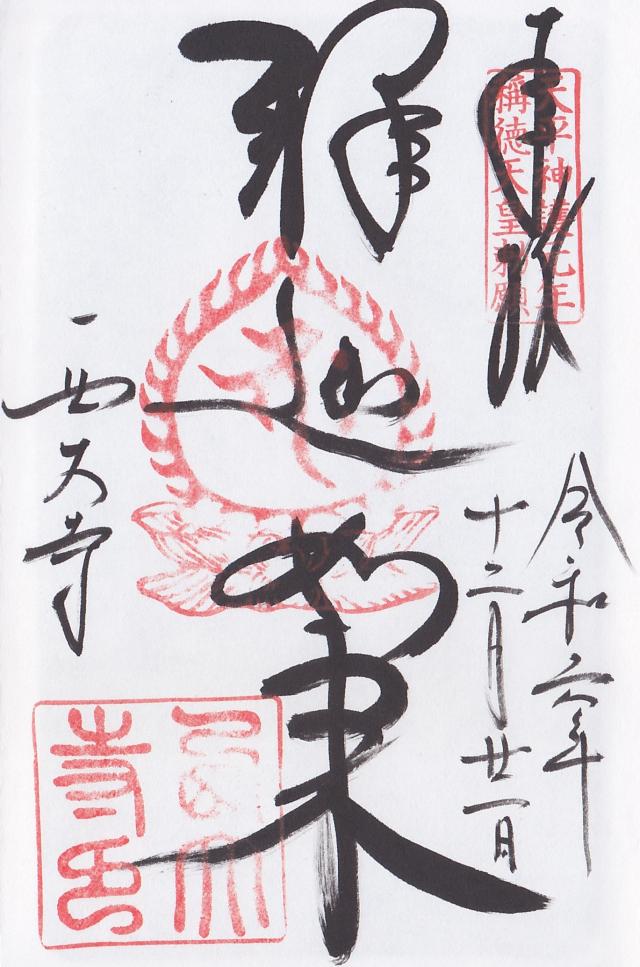 奉拝
天平神護元年
稱徳天皇勅願
令和六年
十二月廿一日
釋迦如来
西大寺
西大寺印